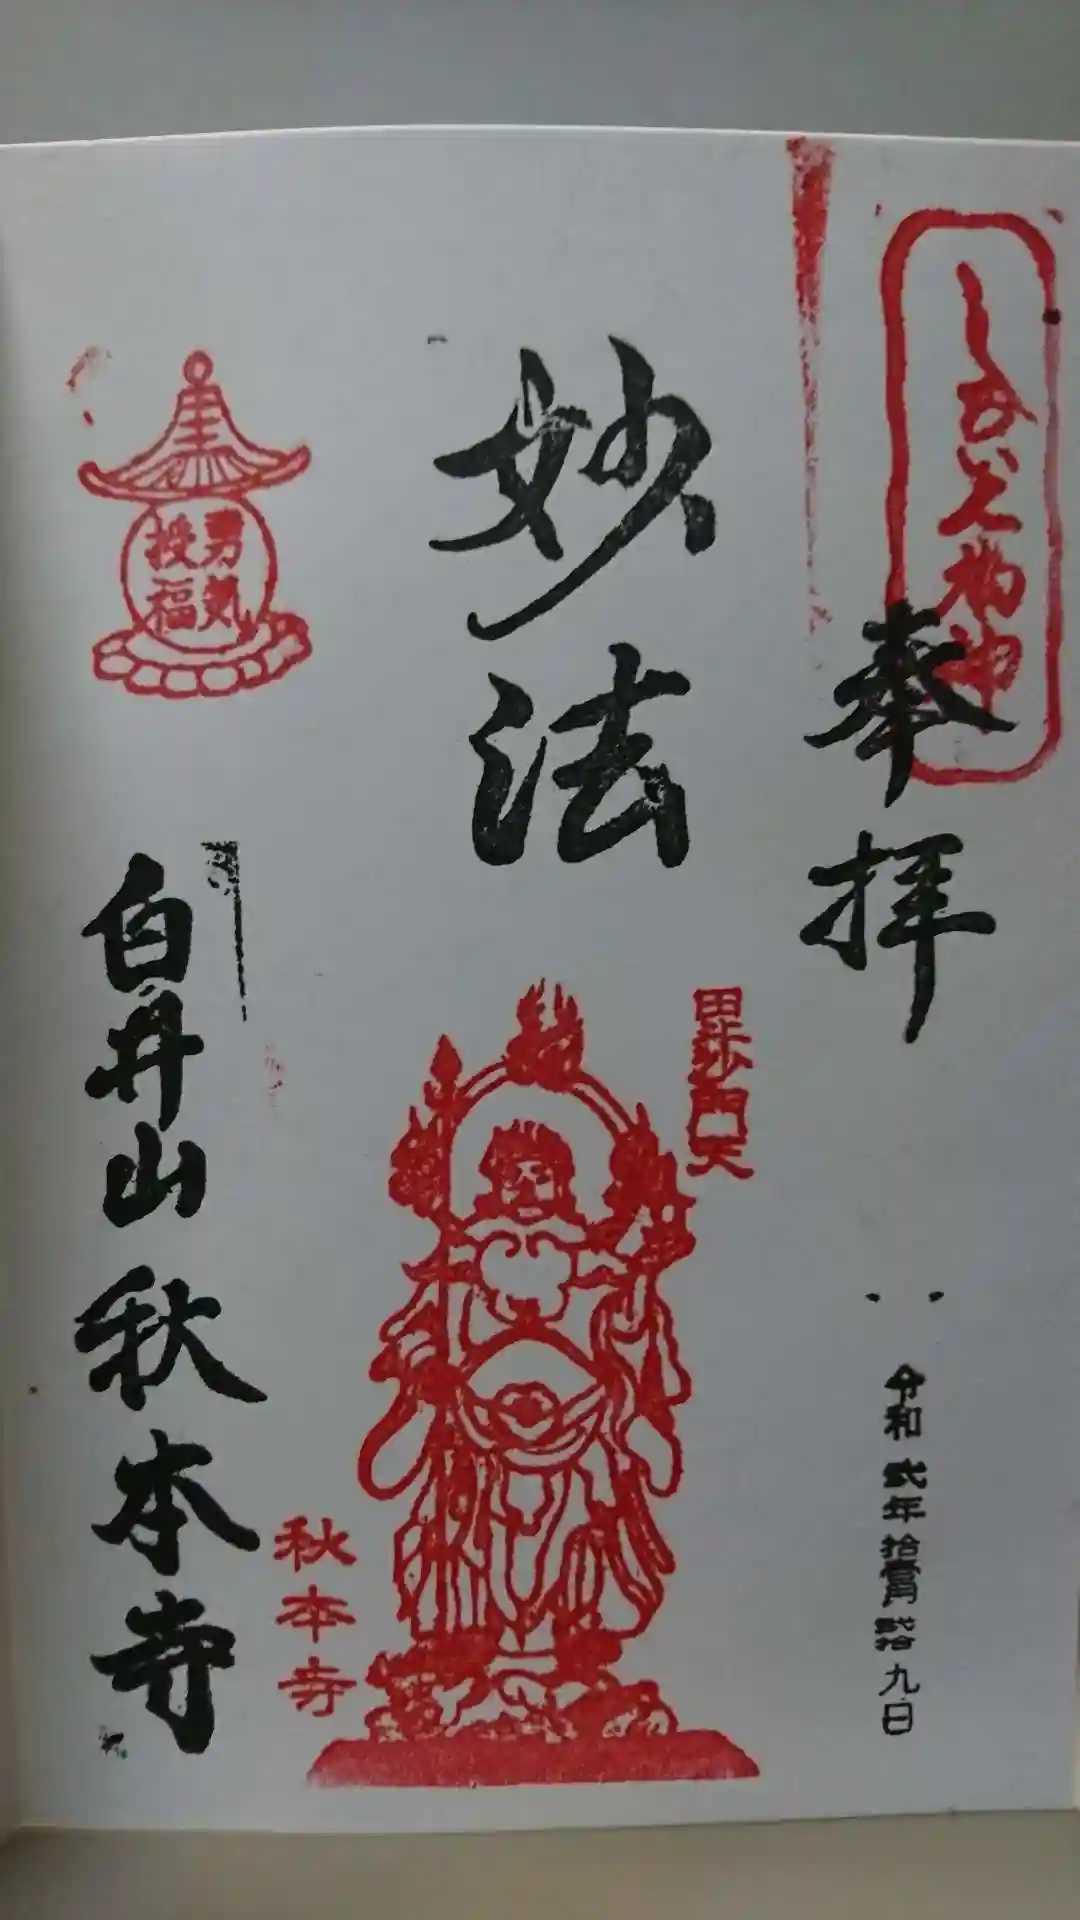 しろい七福神
奉拝
令和 弐年 拾壹月 弐拾 九日
毘沙門天
妙法
秋本寺
勇気
授福
白井山 秋本寺